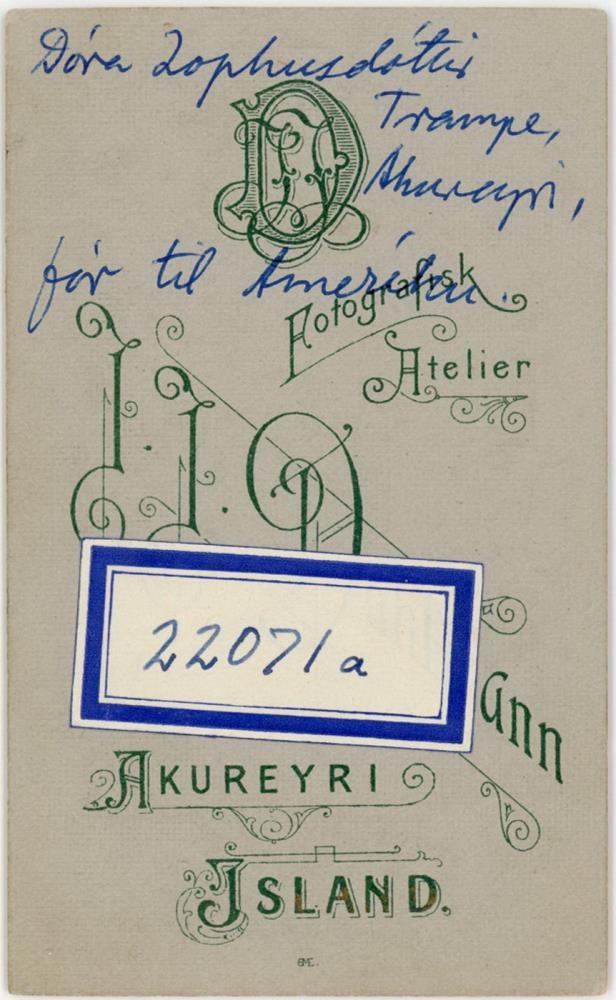 Dóra Zophusdóttir
Trampe,
Akureyri,
fór til Ameríku.
Fotografisk
Atelier
J. J. D
ann
22071a
AKUREYRI
ISLAND.